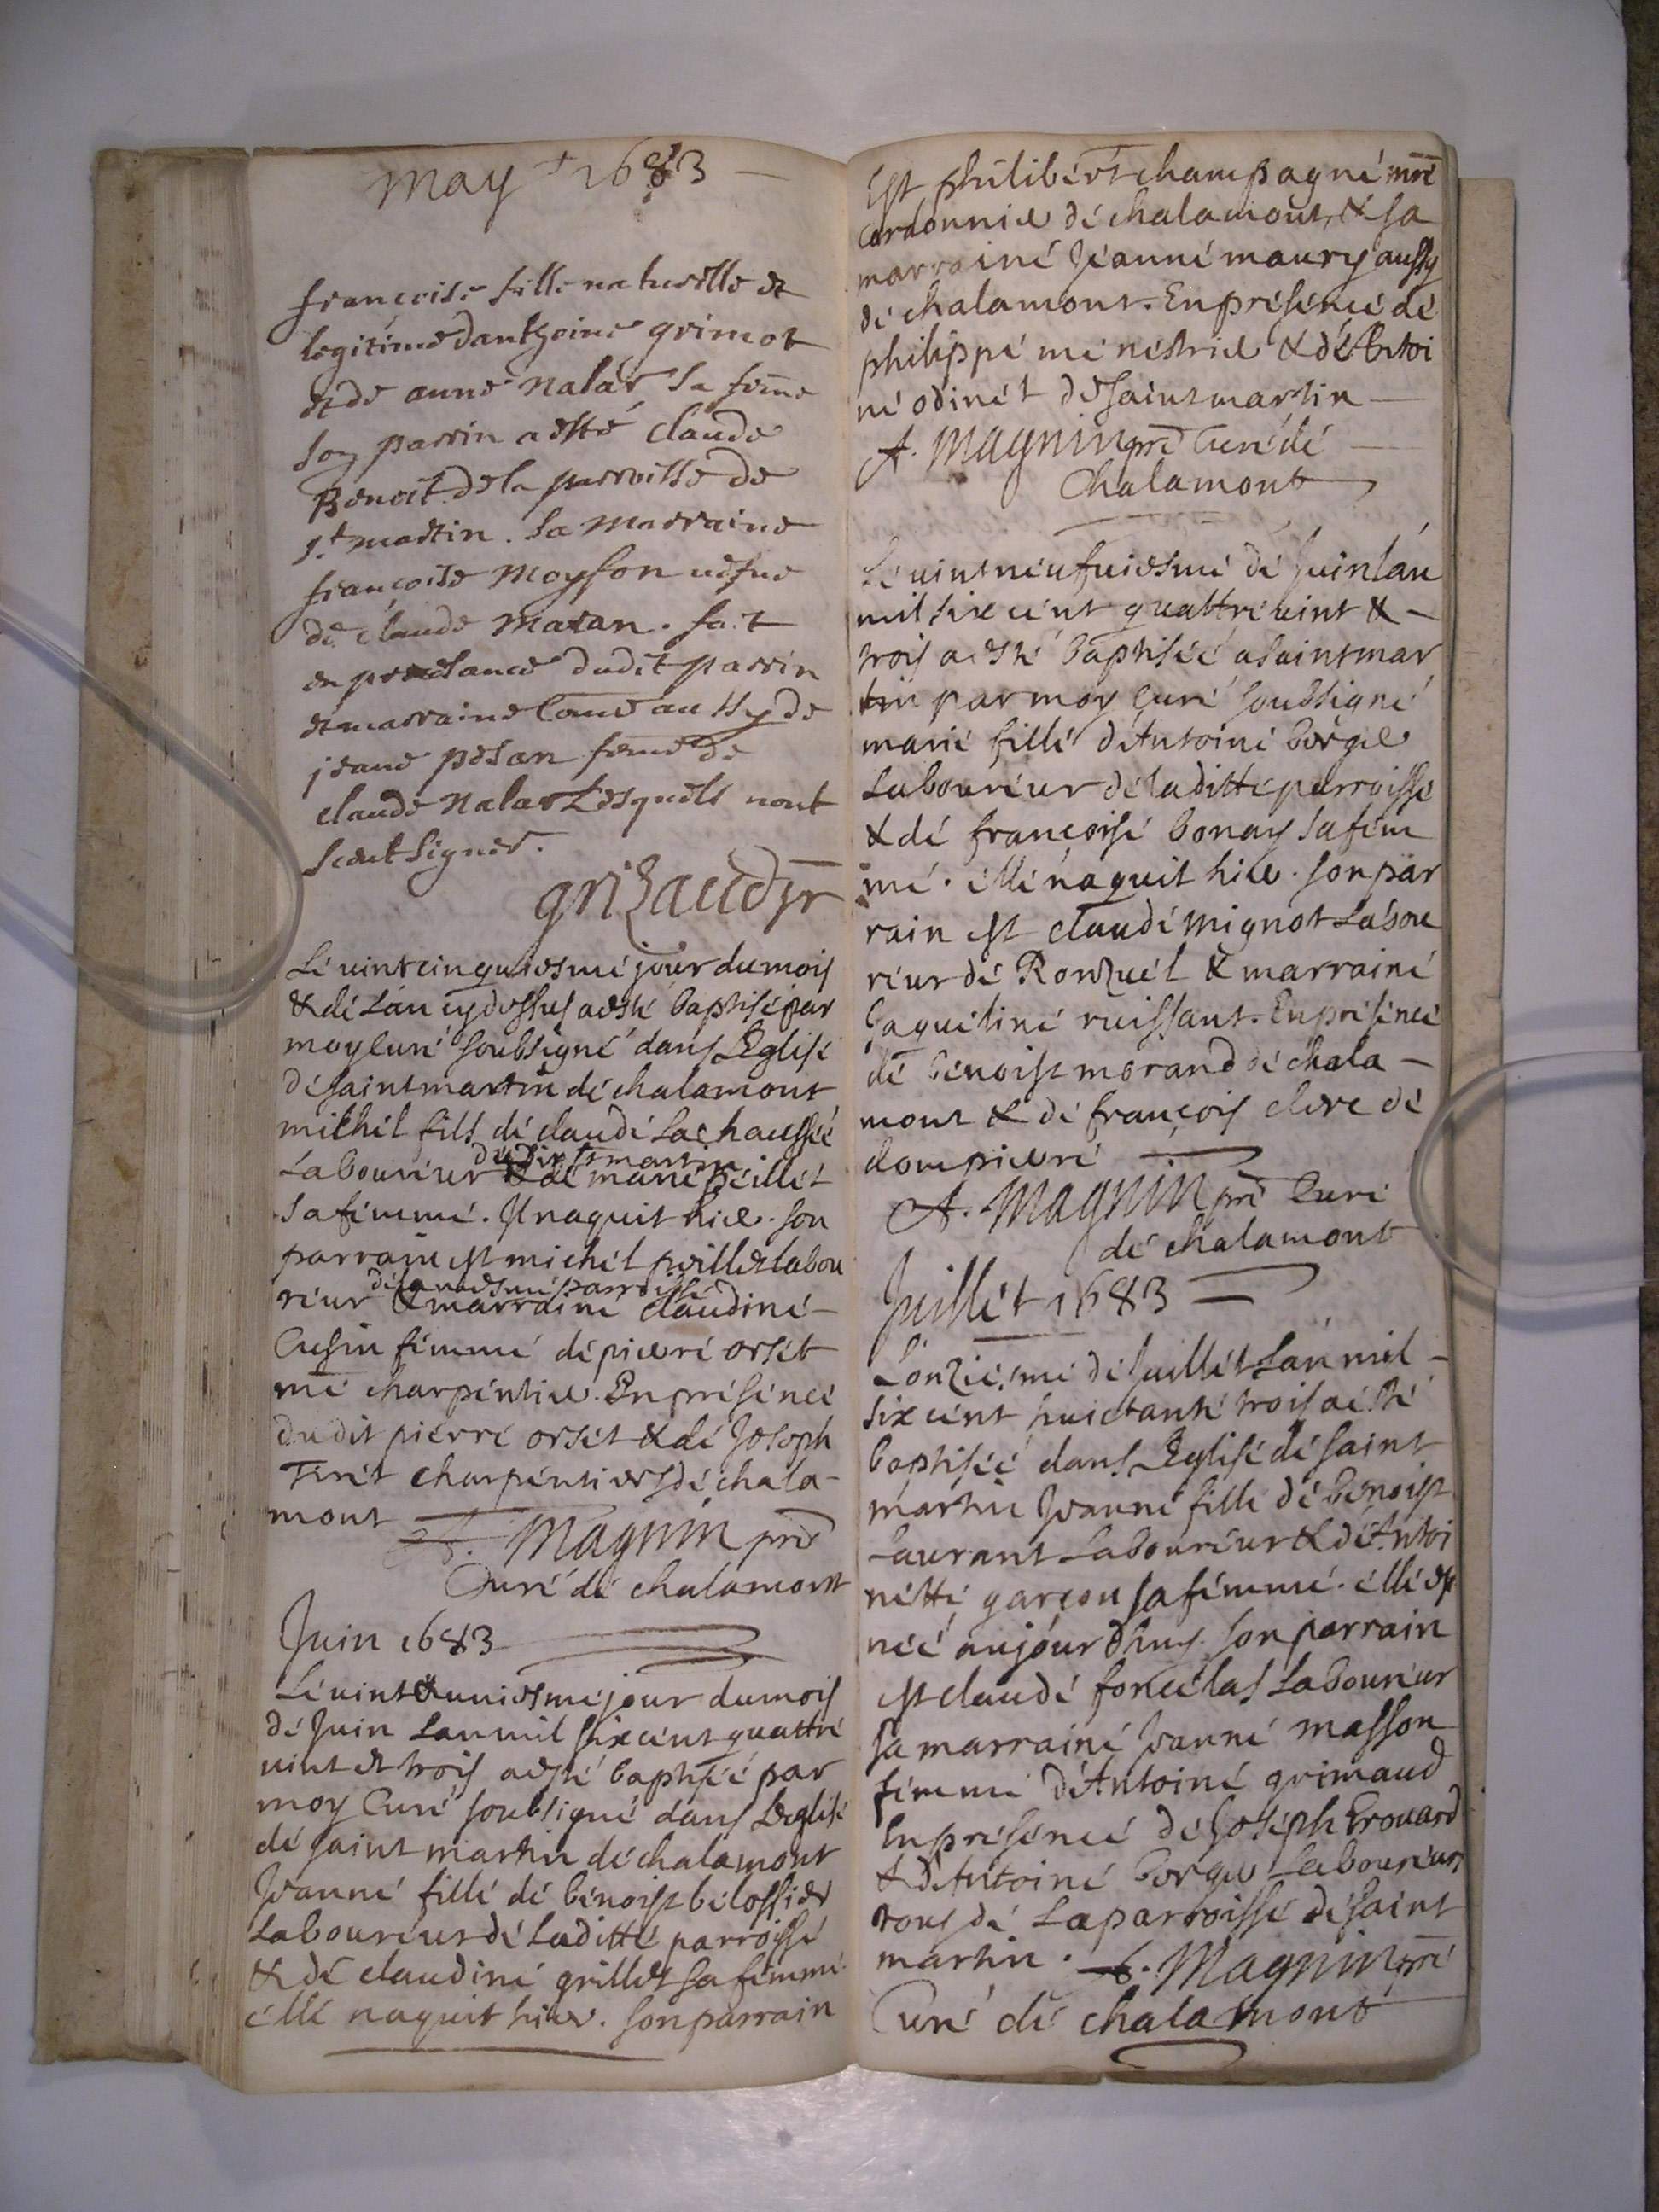 May 1683
françoise fille naturelle et
legitime danthoine grimot
et de anne Nalar sa feme
son parrin a esté Claude
Benoit de la parroisse de
st martin. sa marraine
françoise Moyson vefve
de claude Matan. fait
en presance dudit parrin
et marraine Come aussy de
jeane pesan feme de
claude Nalar Lesquels nont
sceut signer.
grizaud
Lé vint cinquiesmé jour du mois
& dé Lan cydessus a esté baptisé par
moy curé soubsigné dans Léglisé
dé saint martin dé chalamont
michél fils dé claudé Lachaussée
dudit st martin
Labouréur & dé marié péillét
sa fémmé. Il naquit hier. son
parrain est michél peillet labou
dé la mesmé parroissé
réur & marrainé claudiné
Cusin fémmé dé pierré orsét
mé charpéntier. En présencé
dudit piérré orsét & dé Joseph
Tirét charpéntiers dé chala-
mont A. Magnin pré
Curé dé chalamont
Juin 1683
Lé vint & uniesmé jour du mois
dé Juin Lan mil six cént quattré
vint et trois a esté baptiséé par
moy Curé soubsigné dans Leglisé
dé saint martin dé chalamont
Jeanné fillé dé bénoist bélossier
Labouréur dé Laditté parroissé
& dé claudiné grillet sa fémmé.
éllé naquit hier. son parrain
Est philibért champagné mré
Cordonnier dé chalamont, & sa
marrainé Jéanné maury aussy
dé chalamont. En présencé dé
philippé ménéstrier & dé Antoi
né odinét de saint martin
A. Magnin pré Curé dé
Chalamont
Lé vint neufviesmé dé Juin lán
mil six cént quattré vint &
trois a esté baptiséé a saint mar
tin par moy Curé soubsigné
marié fillé d'Antoiné bergér
Labouréur dé laditté parroissé
& dé françoisé bonay sa fém
mé. éllé naquit hier. son par
rain est claudé mignot Labou
réur dé Ronzuél & marrainé
Jaquéliné ruissant. En présencé
dé bénoist morand dé chala-
mont & dé françois clerc dé
dompierré
A. Magnin pré Curé
dé chalamont
Juillét 1683
Lonziésmé dé Juillét Lan mil
six cént huictanté trois a ésté
baptiséé dans Léglisé dé saint
martin Jeanné fillé dé bénoist
Laurant Labouréur & dé Antoi
nétté garçon sa fémmé. éllé est
néé aujourdhuy. son parrain
est claudé foncélas Labouréur
sa marrainé Jeanné masson
fémmé d'Antoiné grimaud
En présencé dé Joséph Erouard
& d'Antoiné berger Labouréurs
tous dé La parroissé dé saint
martin. A. Magnin pré
Curé dé chalamont